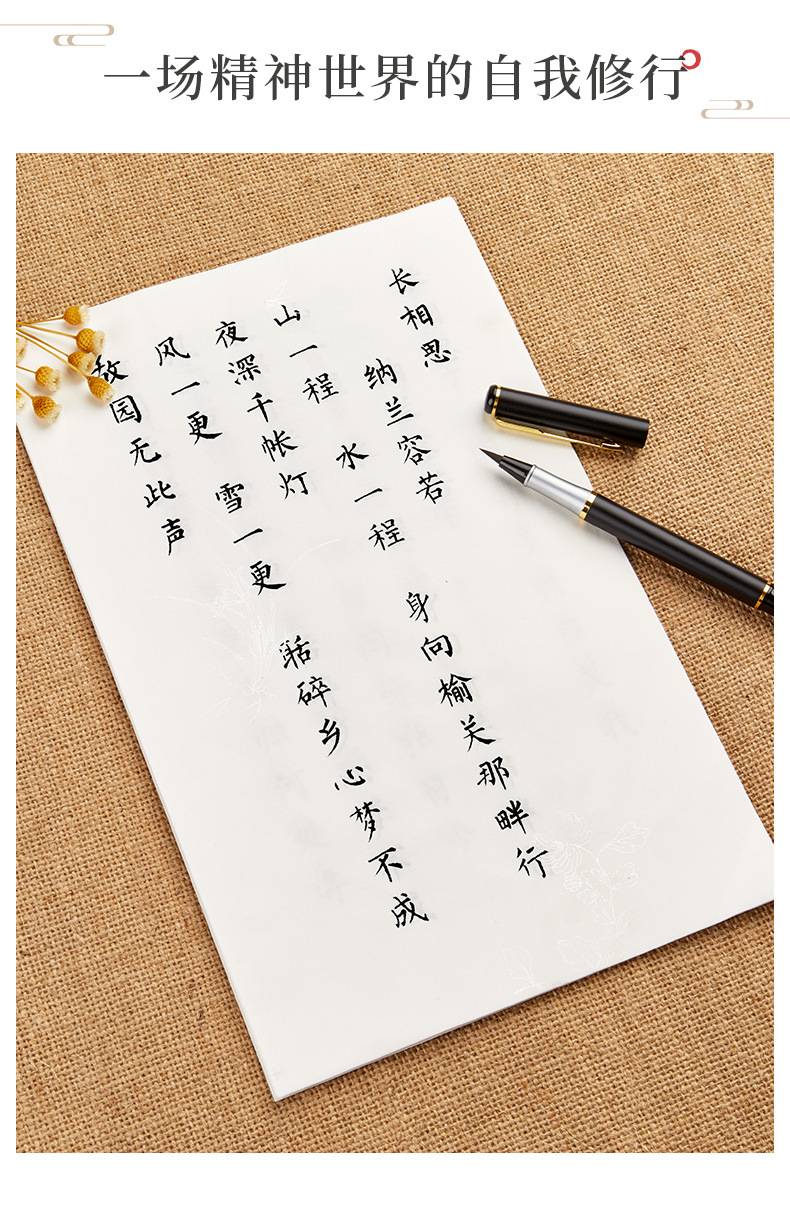 一场精神世界的自我修行
长相思
纳兰容若
山一程 水一程 身向榆关那畔行
夜深千帐灯
风一更 雪一更 聒碎乡心梦不成
故园无此声